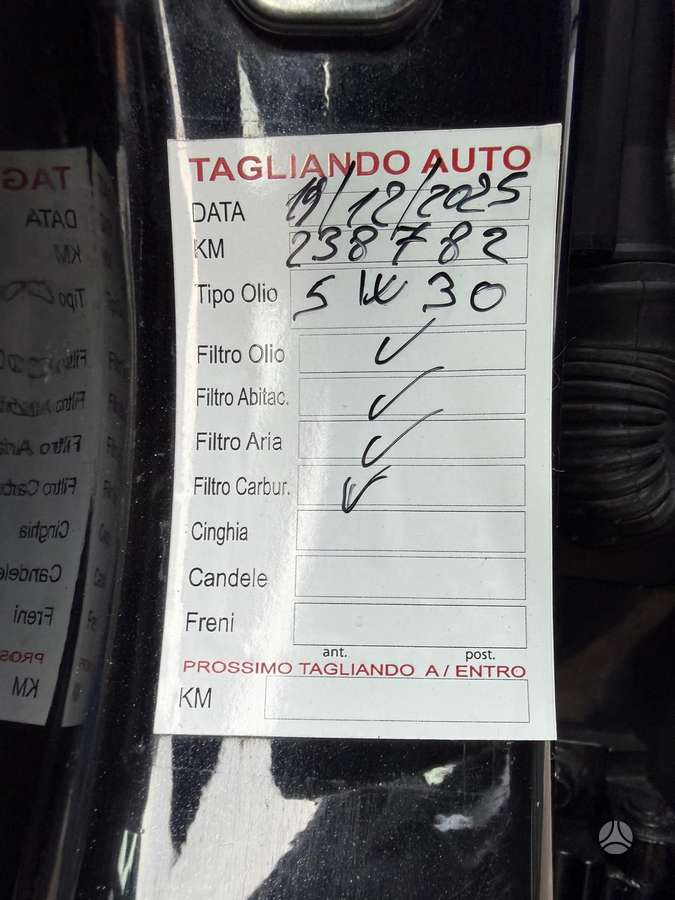 TAGLIANDO AUTO
DATA 19/12/2025
KM 238782
Tipo Olio 5W30
Filtro Olio ✓
Filtro Abitac. ✓
Filtro Aria ✓
Filtro Carbur. ✓
Cinghia
Candele
Freni
ant. post.
PROSSIMO TAGLIANDO A / ENTRO
KM
TAG
DATA
KM
Tipo
Filtro
Filtro
Filtro Aria
Filtro Carbu
Cinghia
Candele
Freni
PROS
KM